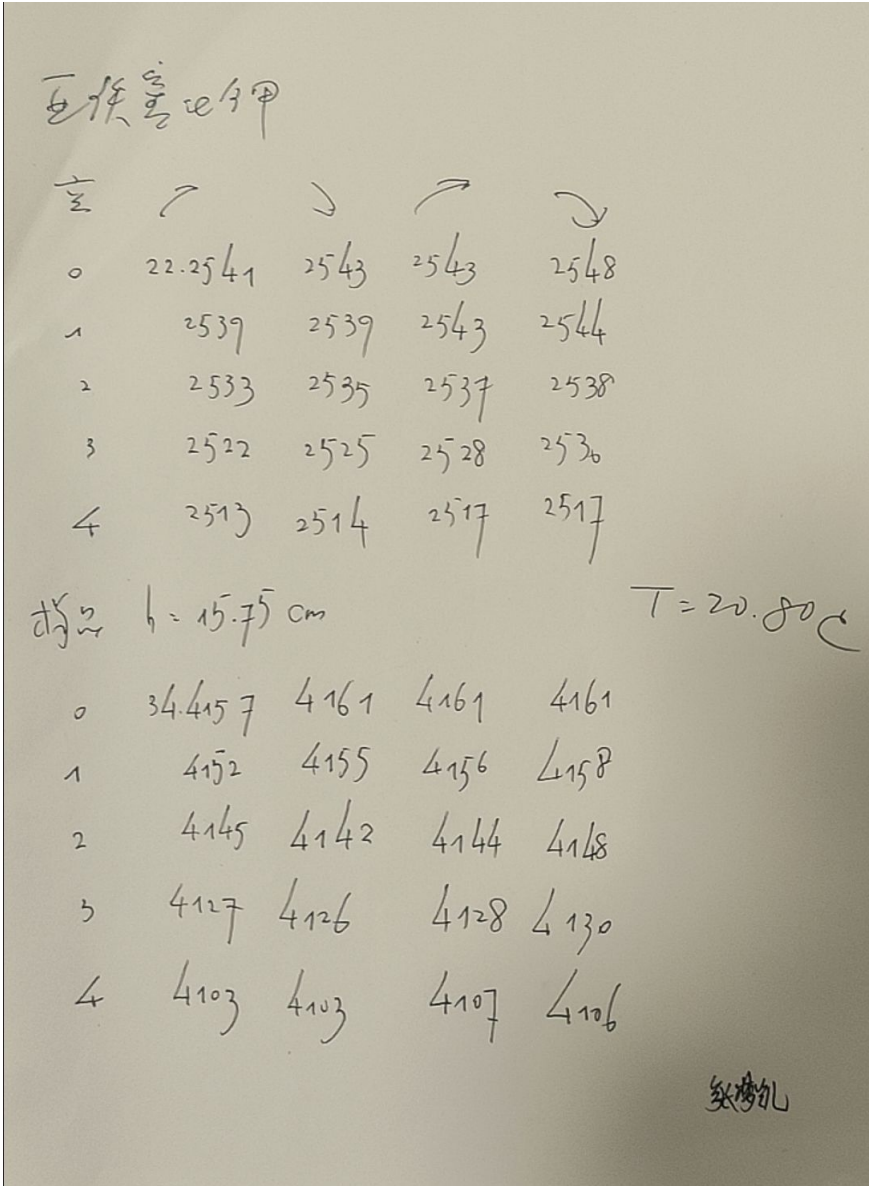 亚铁氰化钾
空 ↗ ↘ ↗ ↘
0 22.2541 2543 2543 2548
1 2539 2539 2543 2544
2 2533 2535 2537 2538
3 2522 2525 2528 2530
4 2513 2514 2517 2517
样品 h = 15.75 cm T = 20.80C
0 34.4157 4161 4161 4161
1 4152 4155 4156 4158
2 4145 4142 4144 4148
3 4127 4126 4128 4130
4 4103 4103 4107 4106